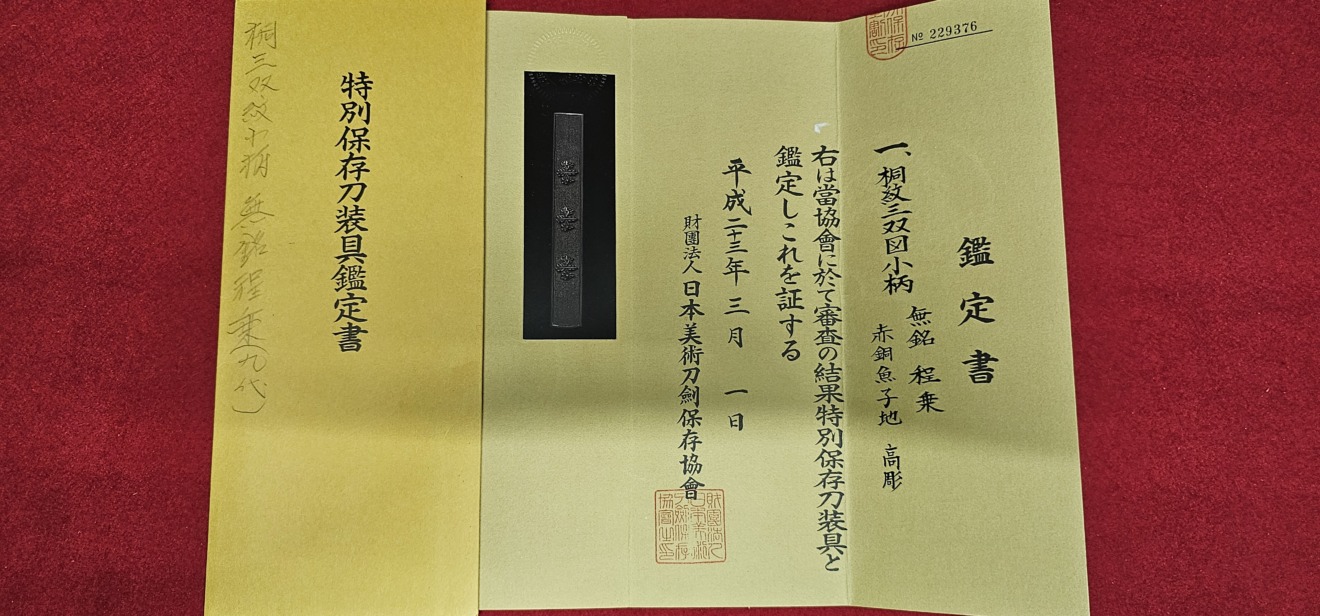 No 229376
鑑定書
一、桐紋三双図小柄
無銘 程乗
赤銅魚子地 高彫
右は當協會に於て審査の結果特別保存刀装具と
鑑定しこれを証する
平成二十三年 三月 一日
財團法人 日本美術刀劍保存協會
特別保存刀装具鑑定書
桐三双紋小柄 無銘程乗(九代)